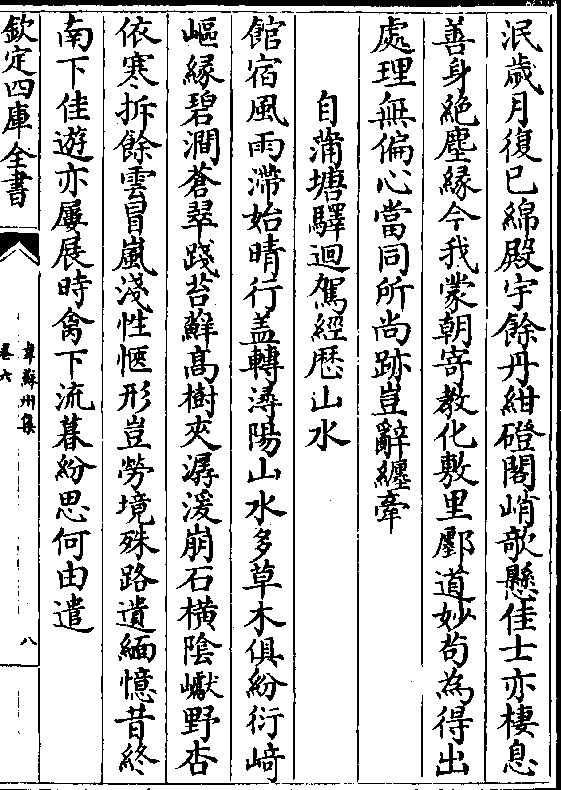 泯歲月復已綿殿宇餘丹紺磴閣峭欹懸佳士亦棲息
善身絶塵緣今我蒙朝寄教化敷里鄽道妙苟為得出
處理無偏心當同所尚跡豈辭纏牽
自蒲塘驛迴駕經歴山水
館宿風雨滯始晴行盖轉潯陽山水多草木俱紛衍﨑
嶇緣碧澗蒼翠踐苔蘚高樹夾潺湲崩石橫陰巘野杏
依寒拆餘雲冒嵐淺性愜形豈勞境殊路遺緬憶昔終
南下佳遊亦屢展時禽下流暮紛思何由遣
欽定四庫全書
韋蘇州集
卷六
八